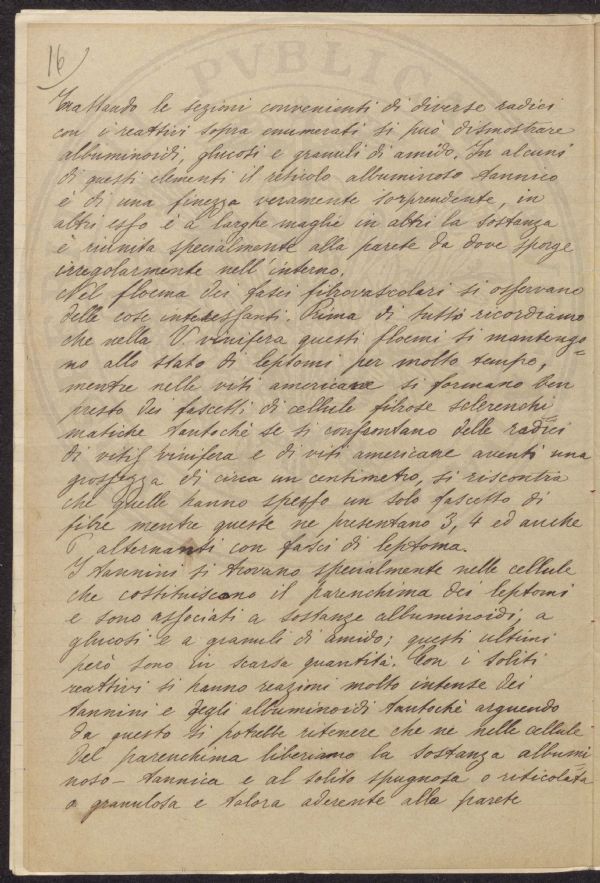 16)
PVBLIC
Trattando le sezioni convenienti di diverse radici
con i reattivi sopra enumerati si può dismostrare
albuminoidi, glucosi e granuli di amido. In alcuni
di questi elementi il reticolo albuminoso tannico
è di una finezza veramente sorprendente, in
altri esso è a larghe maglie in altri la sostanza
è riunita specialmente alla parete da dove sporge
irregolarmente nell'interno.
Nel floema dei fasci fibrovascolari si osservano
delle cose interessanti. Prima di tutto ricordiamo
che nella V. vinifera questi floemi si mantengo=
no allo stato di leptomi per molto tempo,
mentre nelle viti americane si formano ben
presto dei fascetti di cellule fibrose sclerenchi=
matiche tantochè se si confrontano delle radici
di vitis vinifera e di viti americane aventi una
grossezza di circa un centimetro, si riscontra
che quelle hanno spesso un solo fascetto di
fibre mentre queste ne presentano 3, 4 ed anche
alternanti con fasci di leptoma.
I tannini si trovano specialmente nelle cellule
che costituiscono il parenchima dei leptomi
e sono associati a sostanze albuminoidi, a
glucosi e a granuli di amido; questi ultimi
però sono in scarsa quantità. Con i soliti
reattivi si hanno reazioni molto intense dei
tannini e degli albuminoidi tantochè arguendo
da questo si potrebbe ritenere che ne nelle cellule
del parenchima liberiamo la sostanza albumi=
noso-tannica e al solito spugnosa o reticolata
o granulosa e talora aderente alla parete